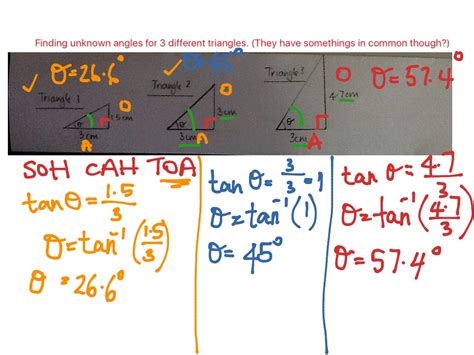 Finding unknown angles for 3 different triangles. (They have somethings in common though?)
✓ θ=26.6° ✓ θ=45° θ=57.4°
Triangle 1 Triangle 2 Triangle 3
O O O
1.5cm 3cm 4.7cm
θ θ θ
3cm 3cm 3cm
A A A
SOH CAH TOA
tan θ = 1.5/3
θ = tan⁻¹(1.5/3)
θ = 26.6°
tan θ = 3/3 = 1
θ = tan⁻¹(1)
θ = 45°
tan θ = 4.7/3
θ = tan⁻¹(4.7/3)
θ = 57.4°